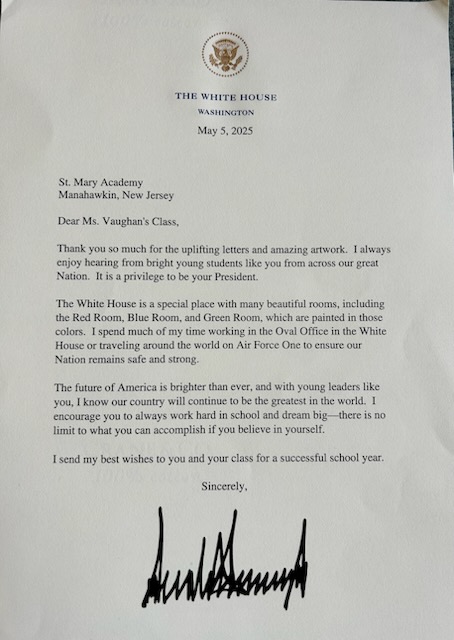 THE WHITE HOUSE
WASHINGTON
May 5, 2025
St. Mary Academy
Manahawkin, New Jersey
Dear Ms. Vaughan's Class,
Thank you so much for the uplifting letters and amazing artwork. I always
enjoy hearing from bright young students like you from across our great
Nation. It is a privilege to be your President.
The White House is a special place with many beautiful rooms, including
the Red Room, Blue Room, and Green Room, which are painted in those
colors. I spend much of my time working in the Oval Office in the White
House or traveling around the world on Air Force One to ensure our
Nation remains safe and strong.
The future of America is brighter than ever, and with young leaders like
you, I know our country will continue to be the greatest in the world. I
encourage you to always work hard in school and dream big—there is no
limit to what you can accomplish if you believe in yourself.
I send my best wishes to you and your class for a successful school year.
Sincerely,